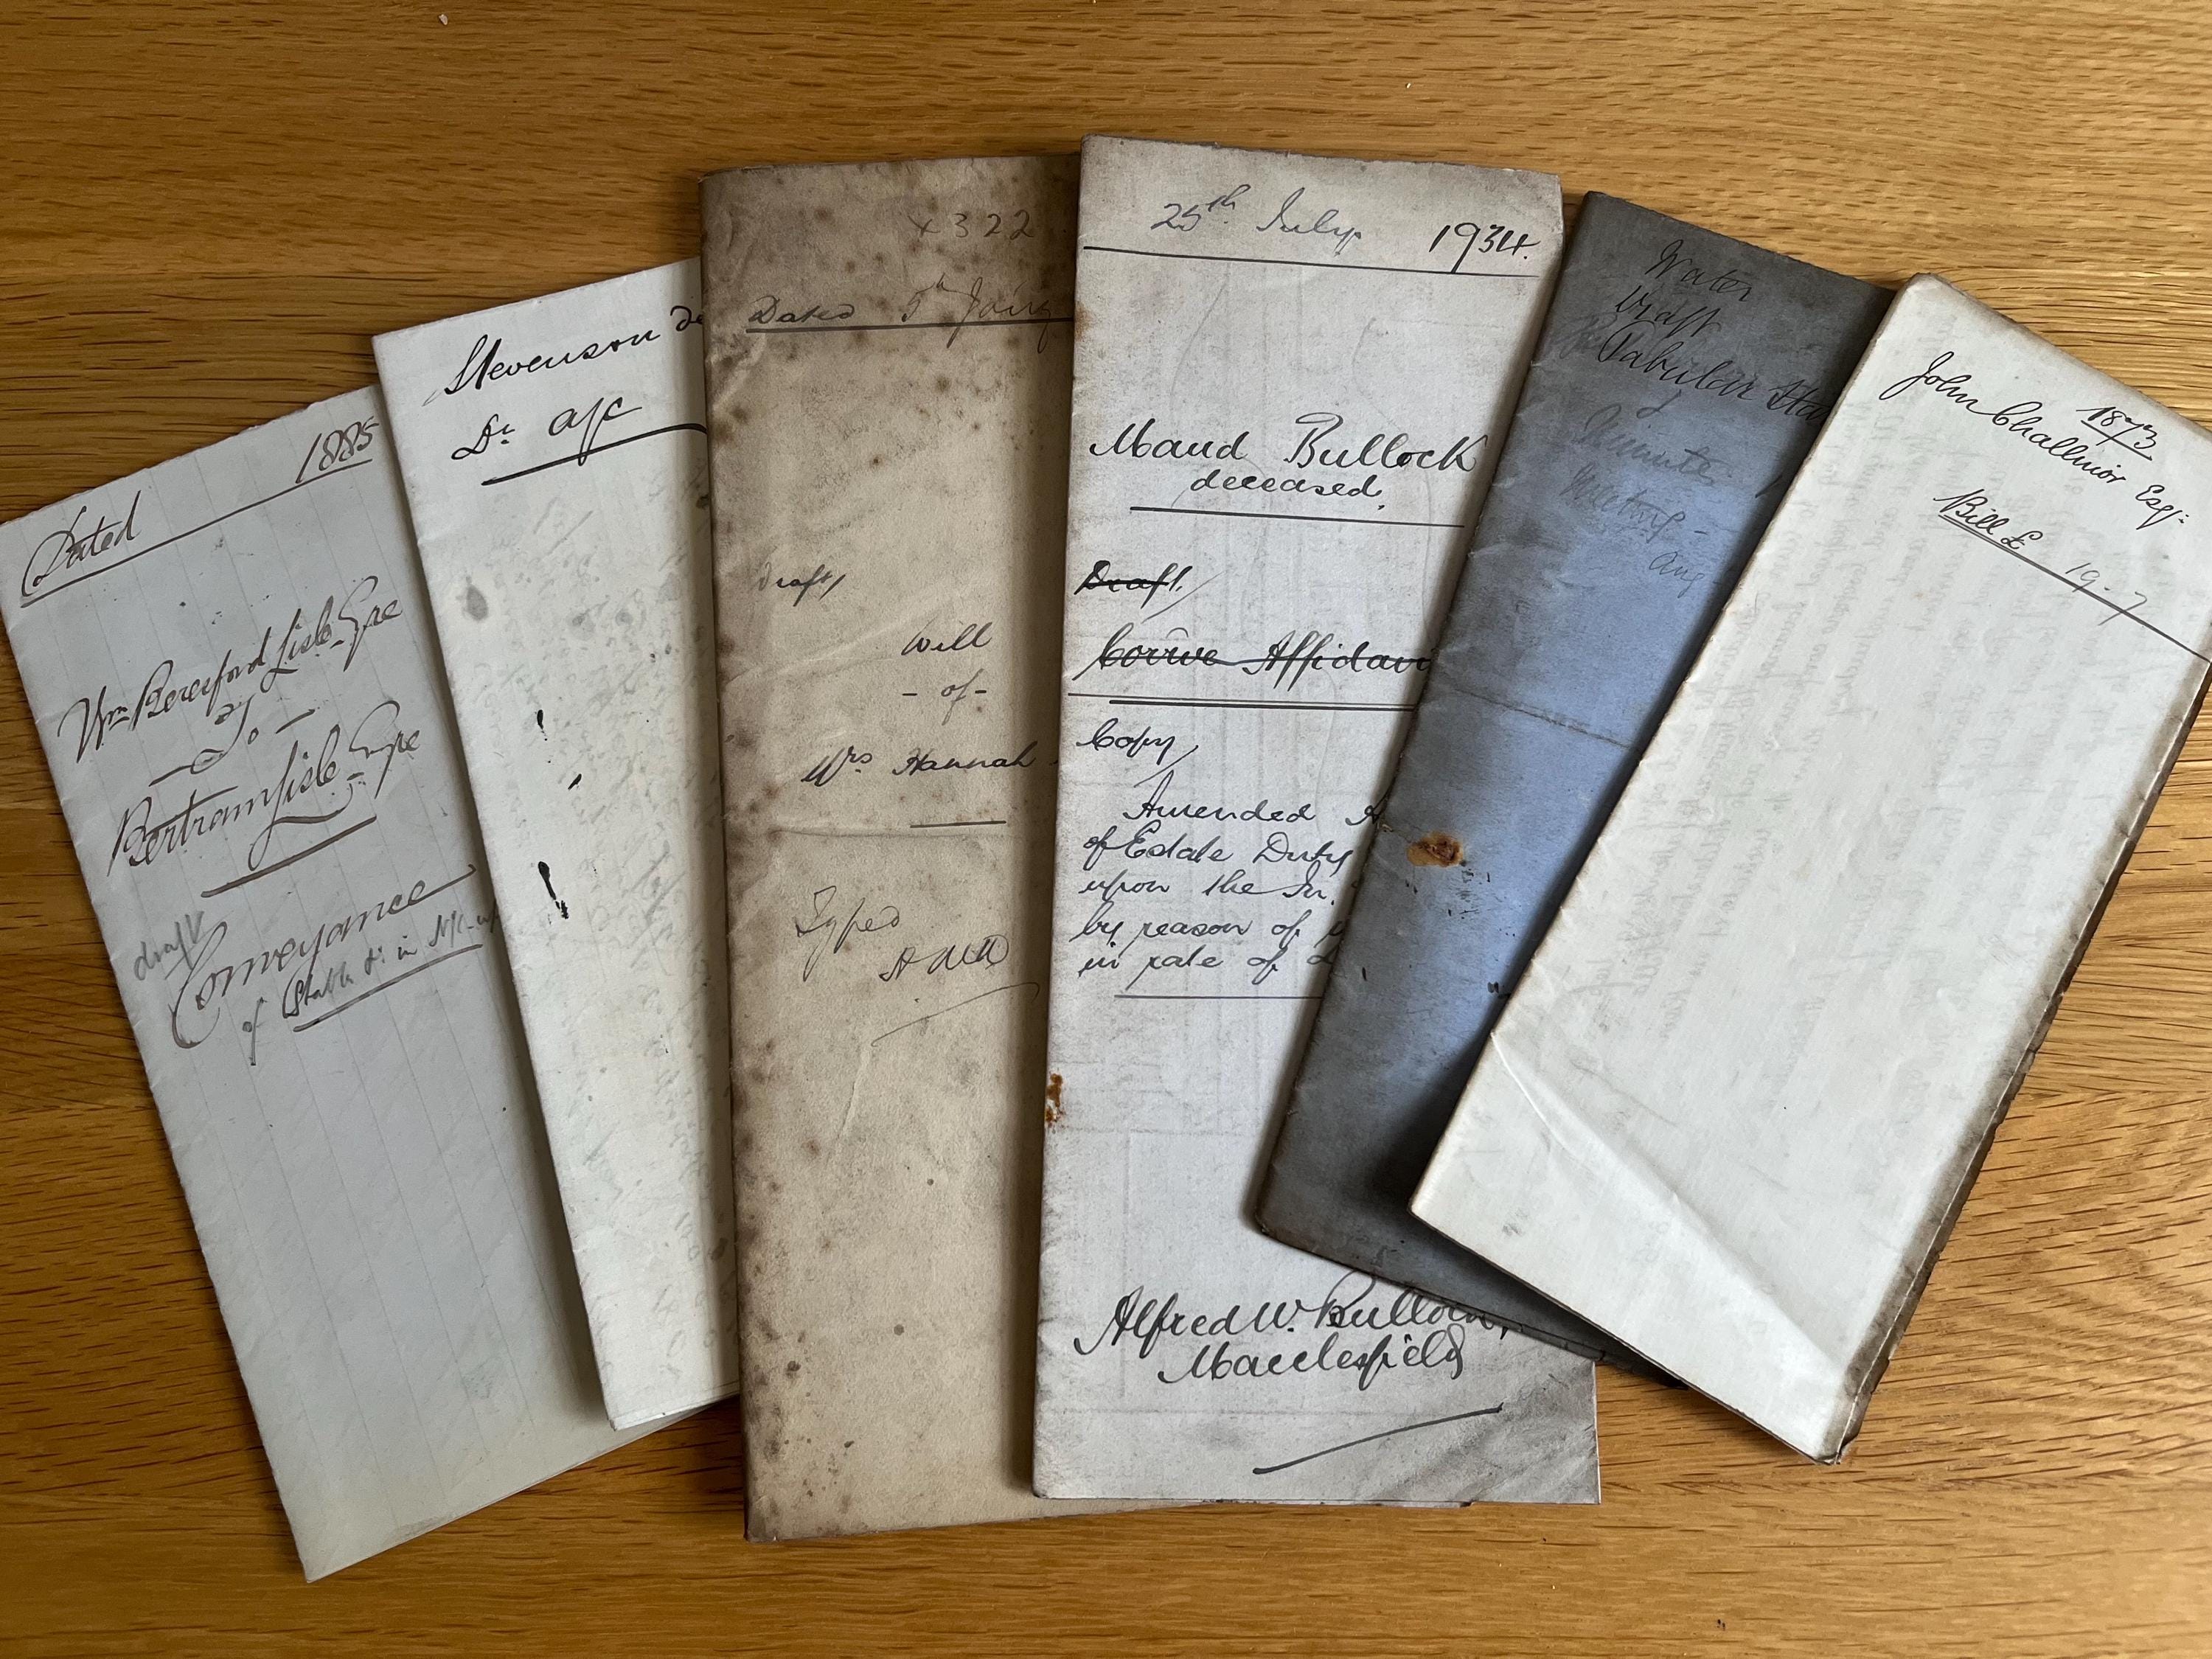 Dated 1885
Wm Beresford Lisle Esqre
To
Bertram Lisle Esqre
draft
Conveyance
of Stable &c in
Stevenson
Dr a/c
x322
Dated 5th Jany
Draft/
Will
- of -
Mrs Hannah
Typed
25th July 1934.
Maud Bullock
deceased,
Draft.
Corrve Affidavi
Copy/
Amended A
of Estate Duty
upon the In.
by reason of
in rate of
Alfred W. Bullock,
Macclesfield
Water
Draft
Tabular Sta
&
Minutes
Meeting -
Aug
1873
John Challinor Esq:
Bill £ 19-7